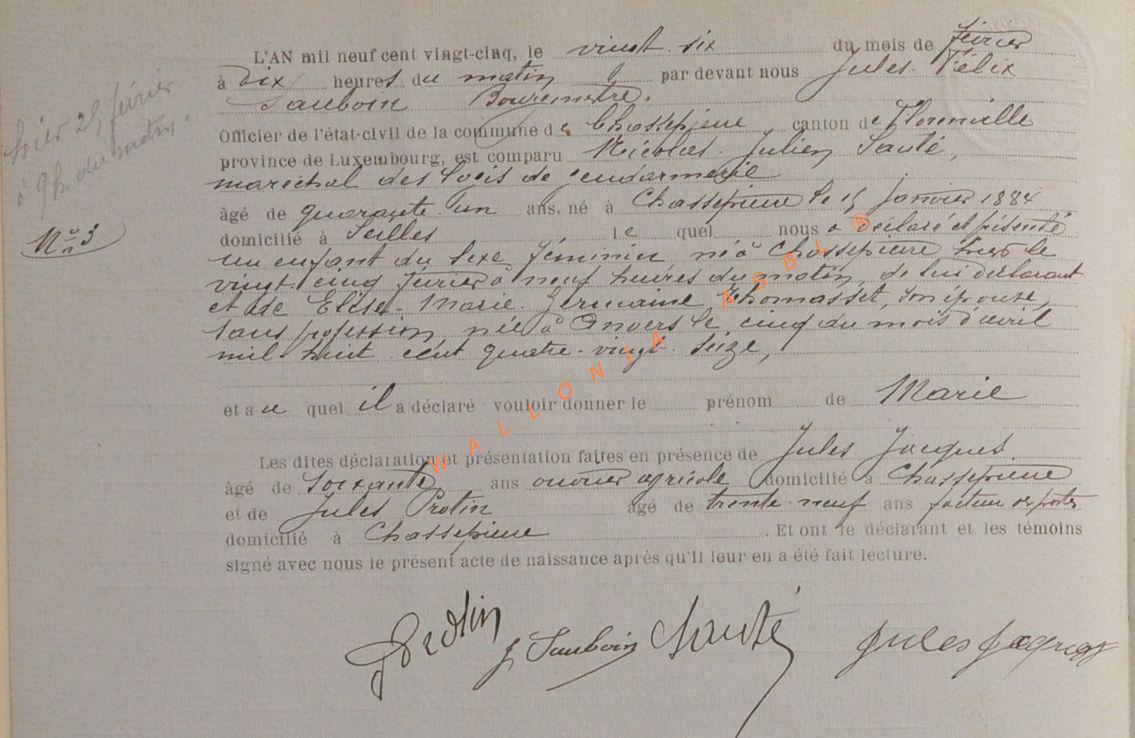 L'AN mil neuf cent vingt-cinq, le vingt six du mois de février
à dix heures du matin par devant nous Jules Félix
Sauboin Bourgmestre.
hier 25 février
à 9h. du matin.
Officier de l'état-civil de la commune de Chassepierre canton de Florenville
province de Luxembourg, est comparu Nicolas Julien Santé,
maréchal des logis de gendarmerie
âgé de quarante un ans, né à Chassepierre le 15 janvier 1884
N° 3
domicilié à Seilles lequel nous a déclaré et présenté
un enfant du sexe féminin né à Chassepierre hier le
vingt-cinq février à neuf heures du matin, de lui déclarant
et de Elise-Marie-Germaine Thomasset, son épouse,
sans profession, née à Anvers le cinq du mois d'avril
mil huit cent quatre-vingt-seize,
et au quel il a déclaré vouloir donner le prénom de Marie
Les dites déclaration et présentation faites en présence de Jules Jacques
âgé de soixante ans ouvrier agricole domicilié à Chassepierre
et de Jules Protin âgé de trente-neuf ans facteur des postes
domicilié à Chassepierre. Et ont le déclarant et les témoins
signé avec nous le présent acte de naissance après qu'il leur en a été fait lecture.
Protin J Sauboin Santé Jules Jacques
WALLONIA ASBL ®